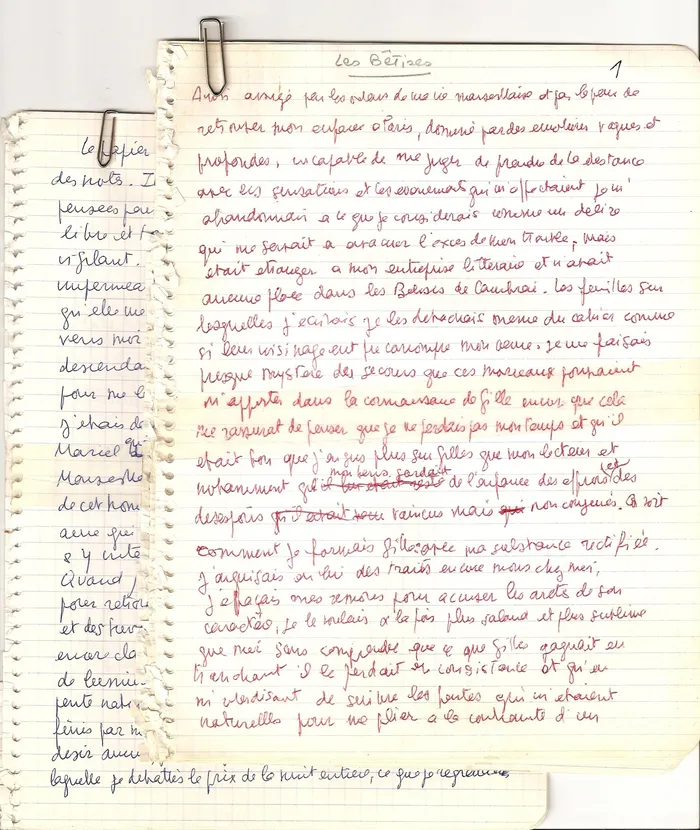 Les Bêtises
1
assiégé par les odeurs de ma vie marseillaise et par la peur de
retrouver mon enfance à Paris, dominé par des émotions vagues et
profondes, incapable de me juger de prendre de la distance
avec les sensations et les évènements qui m'affectaient je m'
abandonnais à ce que je considérais comme un délire
qui me servait à évacuer l'excès de mon trouble, mais
était étranger à mon entreprise littéraire et n'avait
aucune place dans les Bêtises de Cambrai. Les feuilles sur
lesquelles j'écrivais je les détachais même du cahier comme
si leur voisinage eut pu corrompre mon œuvre. Je me faisais
presque mystère des secours que ces morceaux pouvaient
m'apporter dans la connaissance de Gille encore que cela
me rassurat de penser que je ne perdais pas mon temps et qu'il
était bon que j'en sus plus sur Gilles que mon lecteur et
notamment qu'il de l'enfance des effrois et des
désespoirs vaincus mais qui non conjurés. Ce soit
comment je formais Gille avec ma substance rectifiée.
J'aiguisais en lui des traits encore mous chez moi,
j'effaçais mes remores pour accuser les arêtes de son
caractère, je le voulais à la fois plus salaud et plus sublime
que moi sans comprendre que ce que Gille gagnait en
tranchant il le perdait en consistance et qu'en
m'interdisant de suivre les pentes qui m'étaient
naturelles pour me plier à la contrainte d'un
Le papier
des mots. I
pensées par
libre et
vigilant.
imperméa
qu'elle me
vers moi
descenda
pour me l
j'étais de
Marcel
Marseille
de cet hom
âme qui
Quand j
pour retro
et des
encore cla
de
pente natu
finis par m
désir aucu
laquelle je débattis le prix de la nuit entière, ce que je regrettais